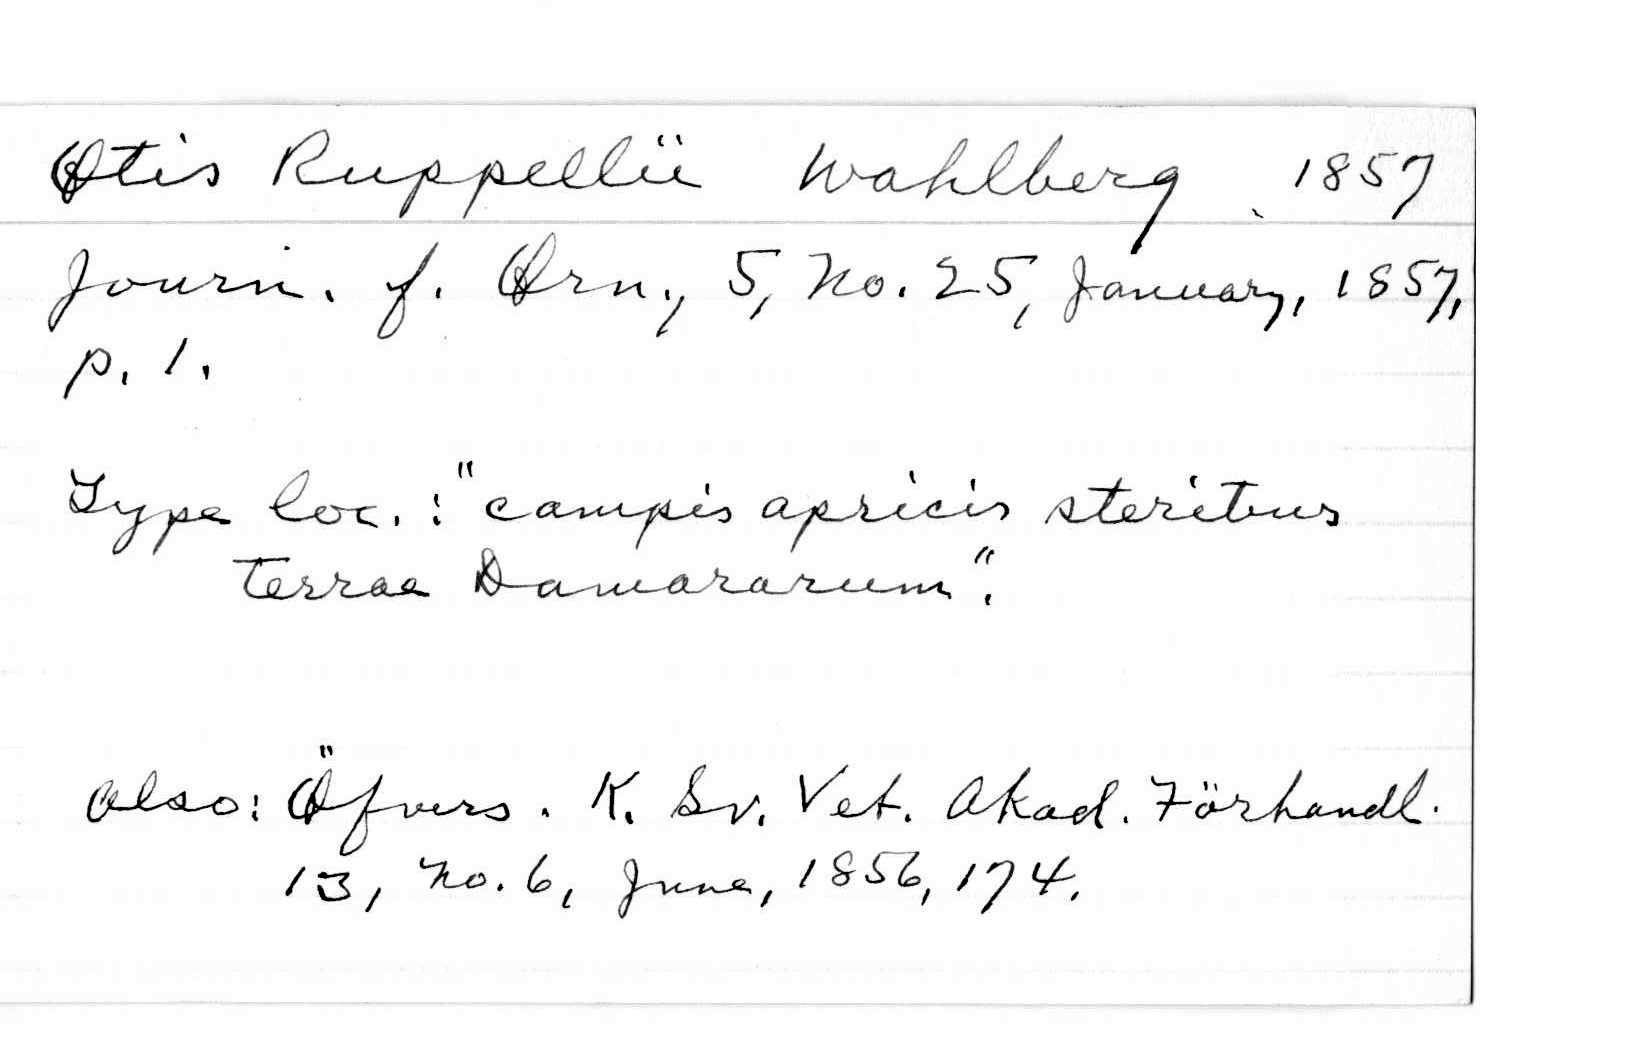 Otis Ruppellii Wahlberg 1857
Journ. f. Orn., 5, No. 25, January, 1857,
p. 1.
Type loc.: "campis apricis steritus
terrae Damararum".
Also: Öfvers. K. Sv. Vet. Akad. Förhandl.
13, No. 6, June, 1856, 174.